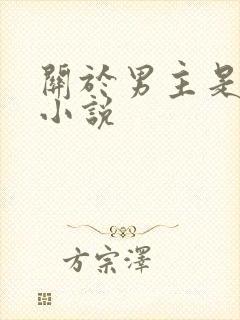 關於男主是
小說
方宗澤